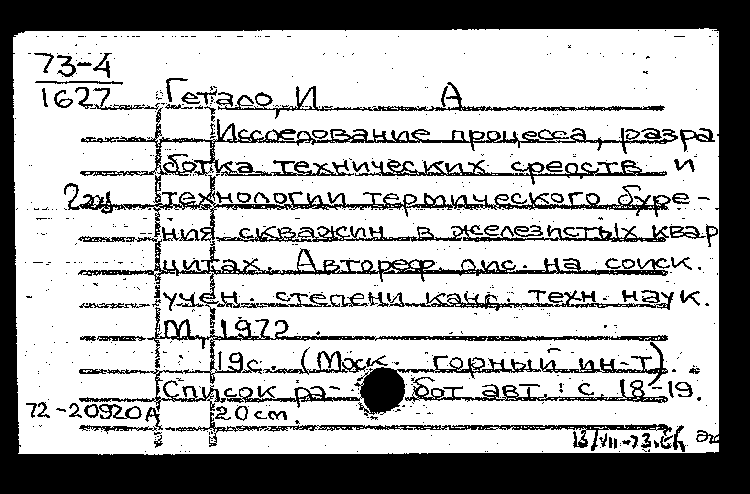 73-4
1627
Гетало, И А
Исследование процесса, разра-
ботка технических средств и
технологии термического буре-
ния скважин в железистых квар
цитах. Автореф. дис. на соиск.
учен. степени канд. техн. наук.
М., 1972.
19с. (Моск. горный ин-т).
Список ра- бот авт.: с. 18-19.
72-20920А 20 см.
13/VII-73.